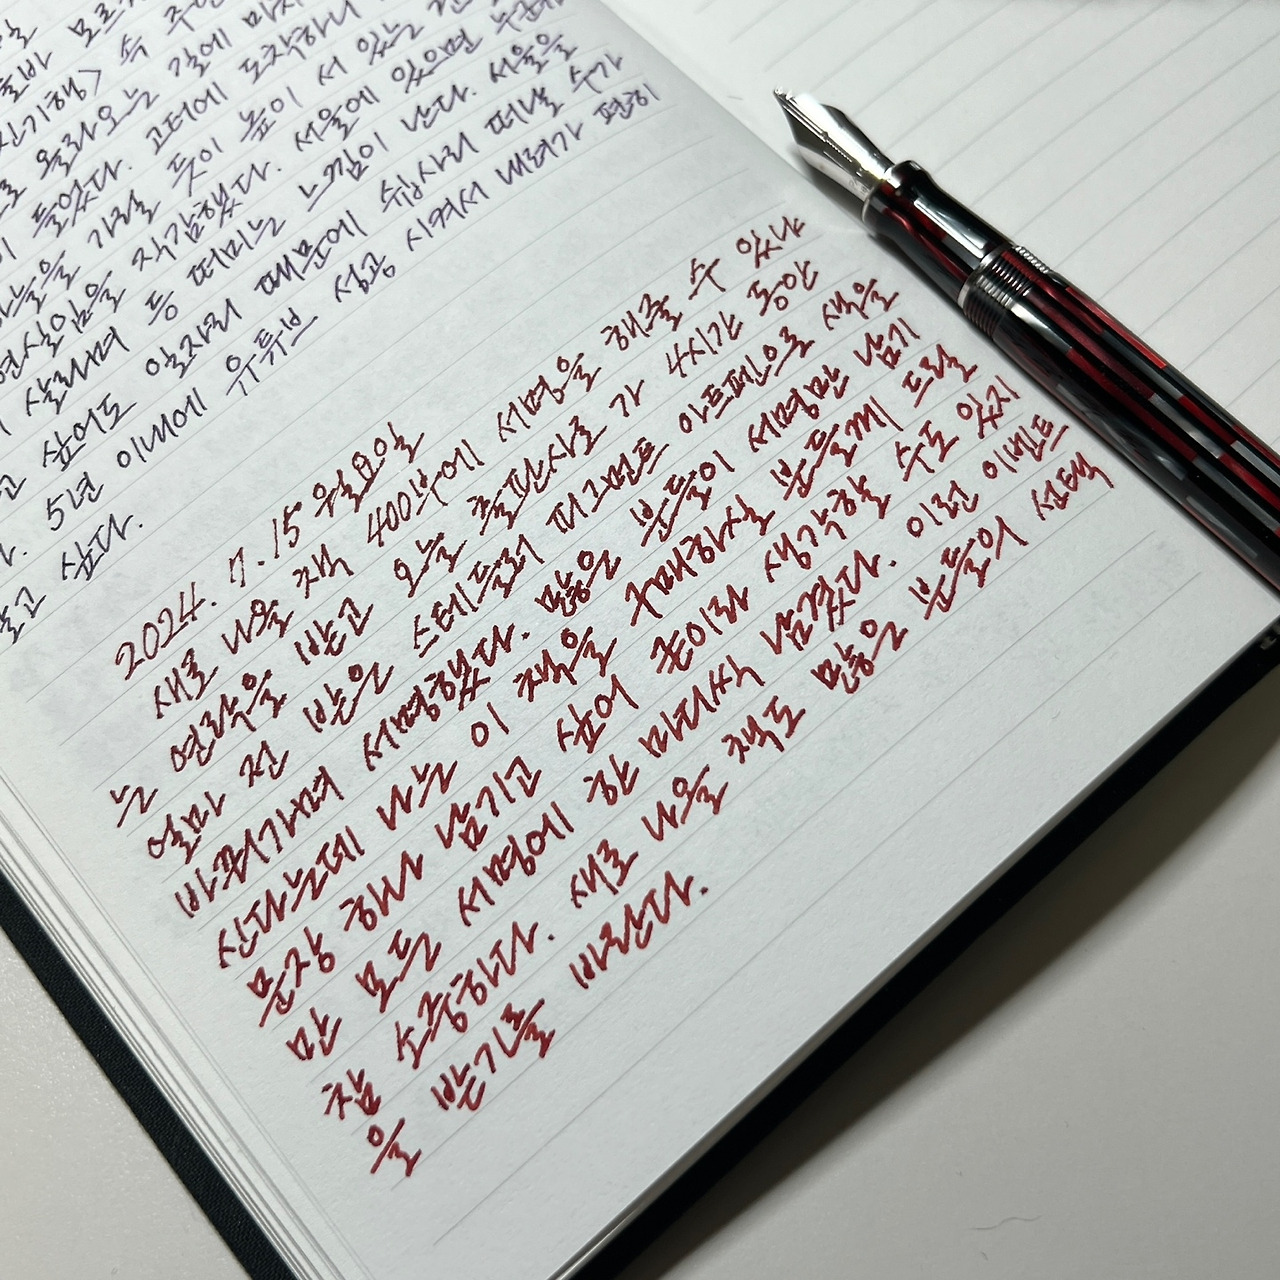 모르
진기행> 속 주인
올라오는 길에 마치
들었다. 고터에 도착하니
하늘을 가릴 듯이 높이 서 있는
현실임을 직감했다. 서울에 있으면 누군
살리며 등 떠미는 느낌이 난다. 서울을
싶어도 일자리 때문에 쉽사리 떠날 수가
5년 이내에 유튜브 성공 시켜서 내려가 편히
싶다.
2024. 7. 15 월요일
새로 나올 책 400부에 서명을 해줄 수 있냐
는 연락을 받고 오늘 출판사로 가 4시간 동안
얼마 전 받은 스테들러 피그먼트 아트펜으로 색을
바꿔가며 서명했다. 많은 분들이 서명만 남기
신다는데 나는 이 책을 구매하실 분들께 드릴
문장 하나 남기고 싶어 혼이라 생각할 수도 있지
만 모든 서명에 한 마디씩 남겼다. 이런 이벤트
참 소중하다. 새로 나올 책도 많은 분들의 선택
을 받기를 바란다.